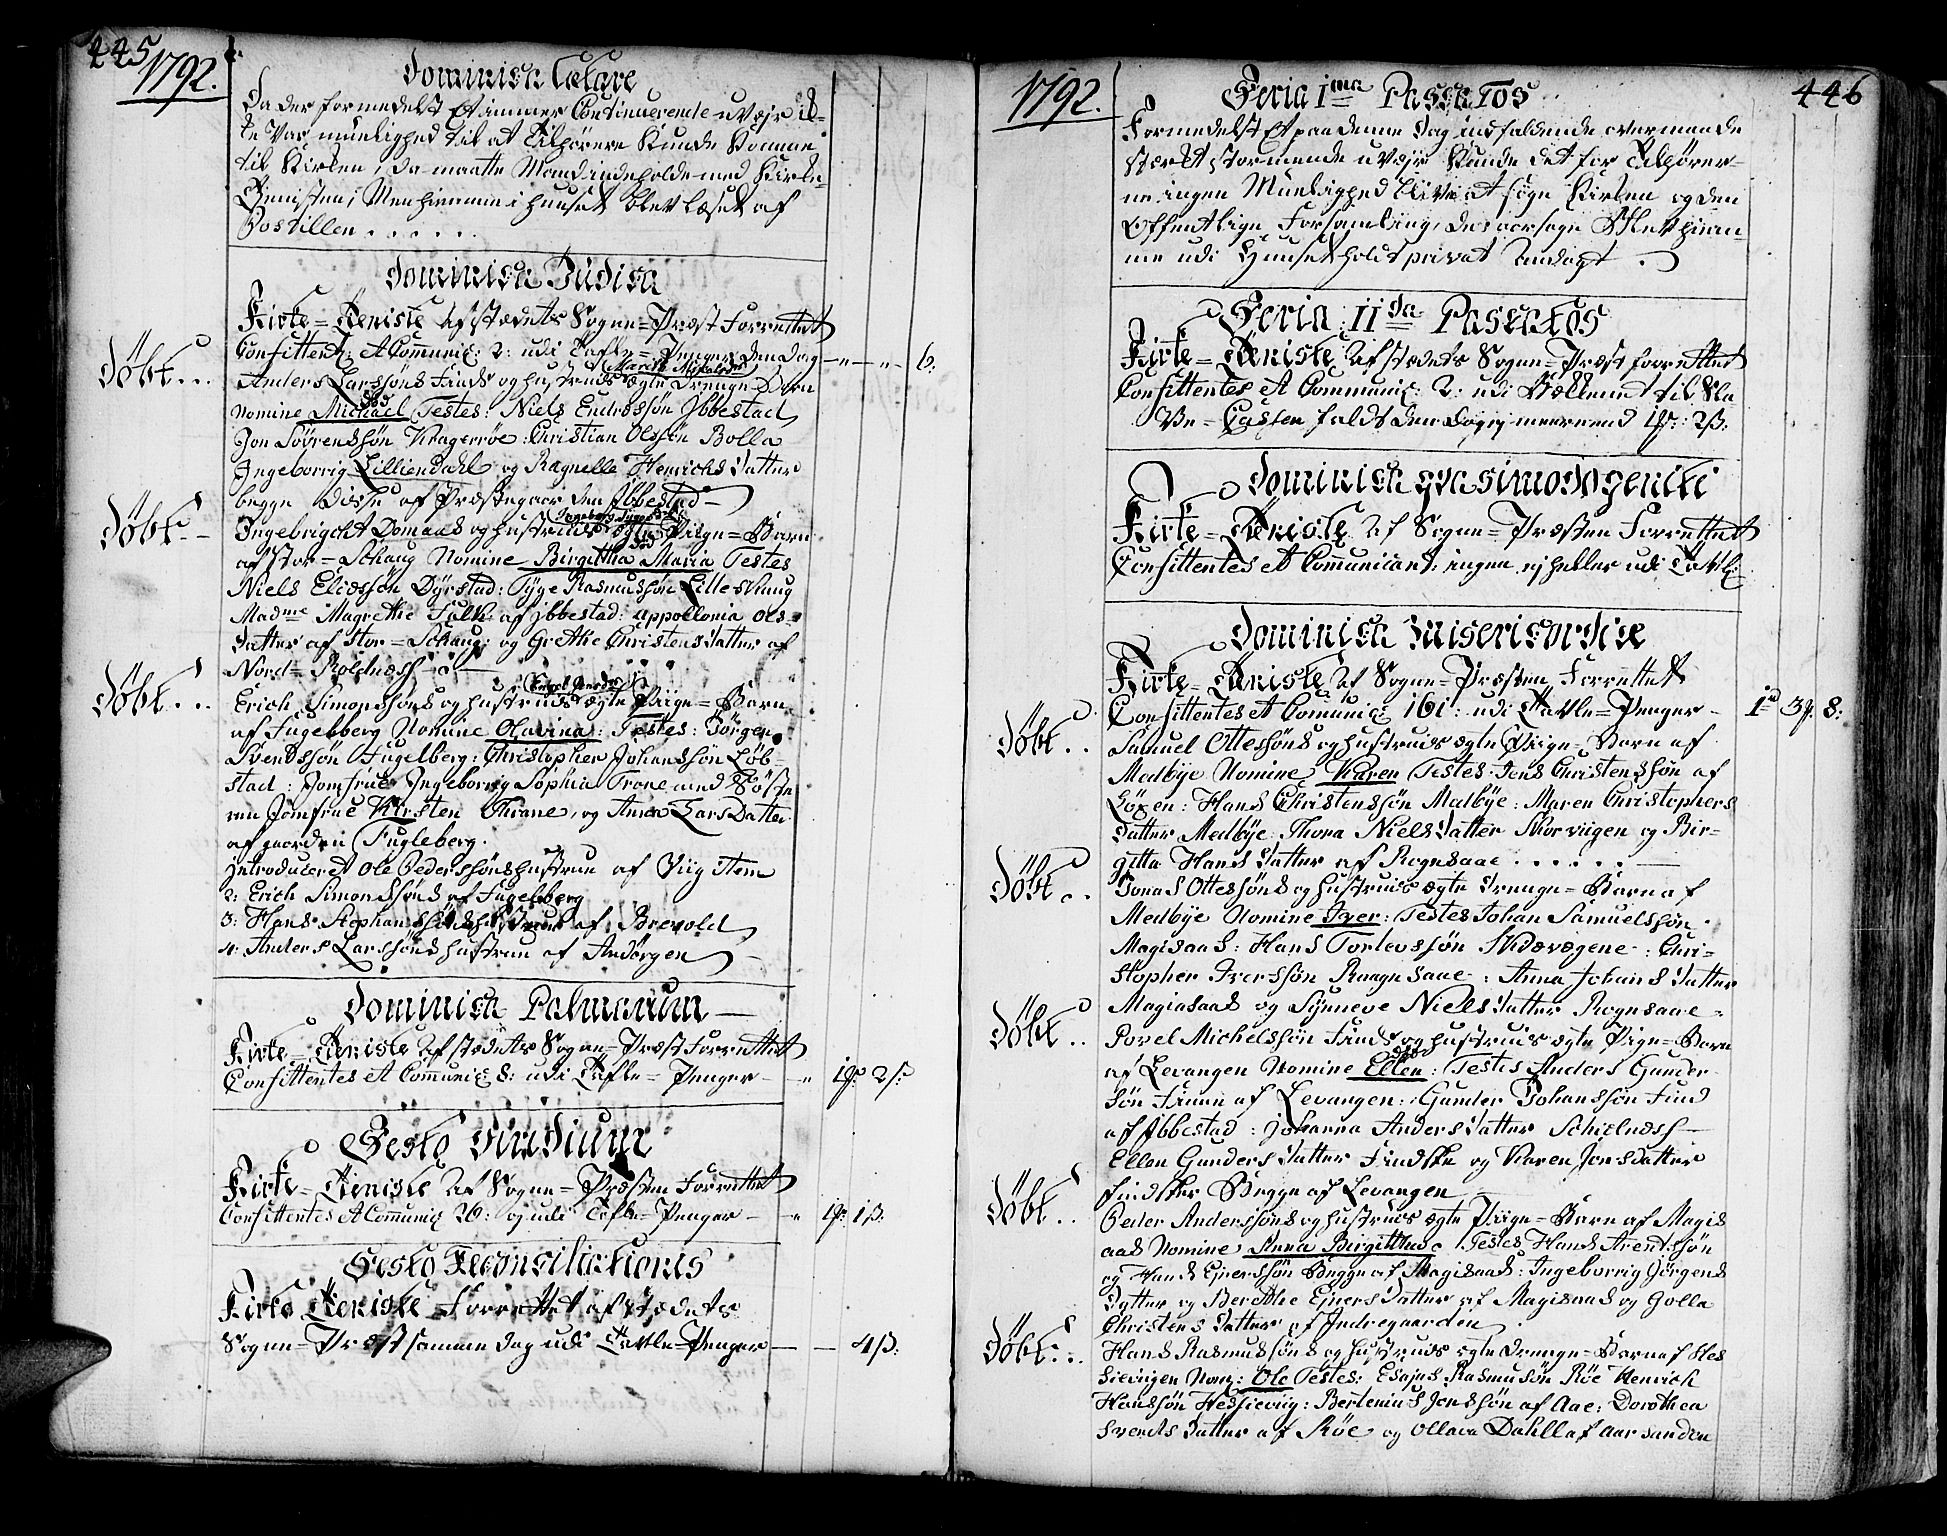 445
1792.
Dominica Lætare
Da der formedelst et immer Continuerende uvejr ik-
ke var muelighed til at Tilhørere kunde komme
til Kirken, da maatte Mand indeholde med Kirke-
Tjenisten; Men hiemme i huuset blev læset af
Postillen . . . . . .
Dominica Judica
Kirke-Tieniste af stædets Sogne-Præst Forrettet
Confittent: et Communic: 2: udi Tafle-Penger den dag - " - " - 6.
Døbt...
Marith Michelsdr
Anders Larssøns Finds og hustrues ægte Drenge Barn
død
Nomine Michael Testes: Niels Endressøn Ibbestad
Jon Sørrenssøn Kragerøe: Christian Olssøn Bolla
Ingeborrig Lilliendahl og Ragnelle Henrichs Datter
begge Diske af Præstegaarden Ibbestad
Døbt.-
Ingebrigcht Domaas og hustrues ægte Piige-Barn
død
af Stor-Schaug Nomine Birgitha Maria Testes
Niels Eliassøn Dyrstad: Tyge Rasmussøn Lilleskaug
Madme Magrethe Falk: af Ibbestad: Appollonia Ols-
Datter af Stor-Schaug: og Grethe Christens Datter af
Nord-Roldnæss
Døbt...
Engel Jensdr
Erich Simonssøns og hustrues ægte Piige-Barn
af Fugelberg Nomine Olavina: Testes: Jørgen
Svendssøn Fugelberg: Christopher Johanssøn Løb-
stad: Jomfrue Ingeborrig Sophia Trone med Søste-
ren Jomfrue Kirsten Throne, og Anna Lars Datter
af gaarden Fugleberg.
Introduceret Ole Pederssøns hustrue af Viig Item
2: Erich Simonssøns af Fugelberg
3: Hans Stephanssøns hustrue af Brevold
4: Anders Larssøns hustrue af Andørgen
Dominica Palmarum
Kirke-Tieniste af stædets Sogne-Præst Forrettet
Confittentes et Communic: 8: udi Tafle-Penger - - " 1p: 2s:
Festo Viridium
Kirke-Tieniste af Sogne-Præsten Forrettet
Confittentes et Communic 26: og udi Tafle-Penger - - " 1p: 1s:
Festo Reconsiliationis
Kirke Tieniste Forrettet af stædets
Sogne-Præst samme dag udi Tavle-Penger - - 4s:
1792.
446
Feria Ima Paschatos
Formedelst et paa denne Dag indfaldende overmaade
stærkt stormende uvejr kunde det for Tilhører-
ne ingen Muelighed blive at søge Kirken og den
Offentlige Forsamling, des aarsage blev hiem-
me udi Huuset holdt privat Andagt.
Feria IIda Paschatos
Kirke-Tieniste af stædets Sogne-Præst forrettet
Confittentes et Communic: 2: udi til Sla
ve-Casten faldt den dag ej meere end 1p: 2s:
Dominica Qvasimodogeniti
Kirke-Tieniste af Sogne-Præsten Forrettet
Confittentes et Communicant: ingen, ej heller udi Tavl:
Dominica Misericordiæ
Kirke-Tieniste af Sogne-Præsten Forrettet
Confittentes et Comunic: 161: udi Tavle-Penger - 1d 3p. 8:
Døbt..
Samuel Ottessøns og hustrues ægte Piige-Barn af
Medbye Nomine Karen Testes Jens Christenssøn af
Løxen: Hans Christenssøn Medbye: Maren Christophers
Datter Medbye: Thora Niels Datter Skorviigen og Bir-
gitta Hans Datter af Rognsaae . . . . . . -
Døbt..
Jonas Ottessøns og hustrues ægte Drenge-Barn af
Medbye Nomine Iver: Testes Johan Samuelssøn
Magisaas: Hans Torlevssøn Skævægene: Chri-
stopher Iverssøn Raagnsaae: Anna Johans Datter
Magiasaas og Synneve Niels Datter Rognsaae-
Døbt..
Povel Michelssøn Finds og hustrues ægte Piige-Barn
død
af Levangen Nomine Ellen: Testes Anders Gunder-
søn Finn af Levangen: Gunder Johanssøn Find
af Ibbestad: Johanna Anders Datter Schielnæss-
Ellen Gunders Datter Findske og Karen Jons Datter
Findske Begge af Levangen
Døbt..
Peder Anderssøns og hustrues ægte Piige-Barn af Magis
aas Nomine Anna Birgitha Testes Hans Arentssøn
og Hans Ejnerssøn Begge af Magisaas: Ingeborrig Jørgens
Datter og Berethe Ejners Datter af Magisaas og Golla
Christens Datter af Indregaarden
Døbt..
Hans Rasmussøns og hustrues ægte Drenge-Barn af Hes
sieviigen Nom: Ole Testes: Esajas Rasmusøn Røe Henrich
Hanssøn Hessieviig: Bertenius Jonssøn af Aae: Dorothea
Svends Datter af Røe og Ollava Dahll af Aarsanden